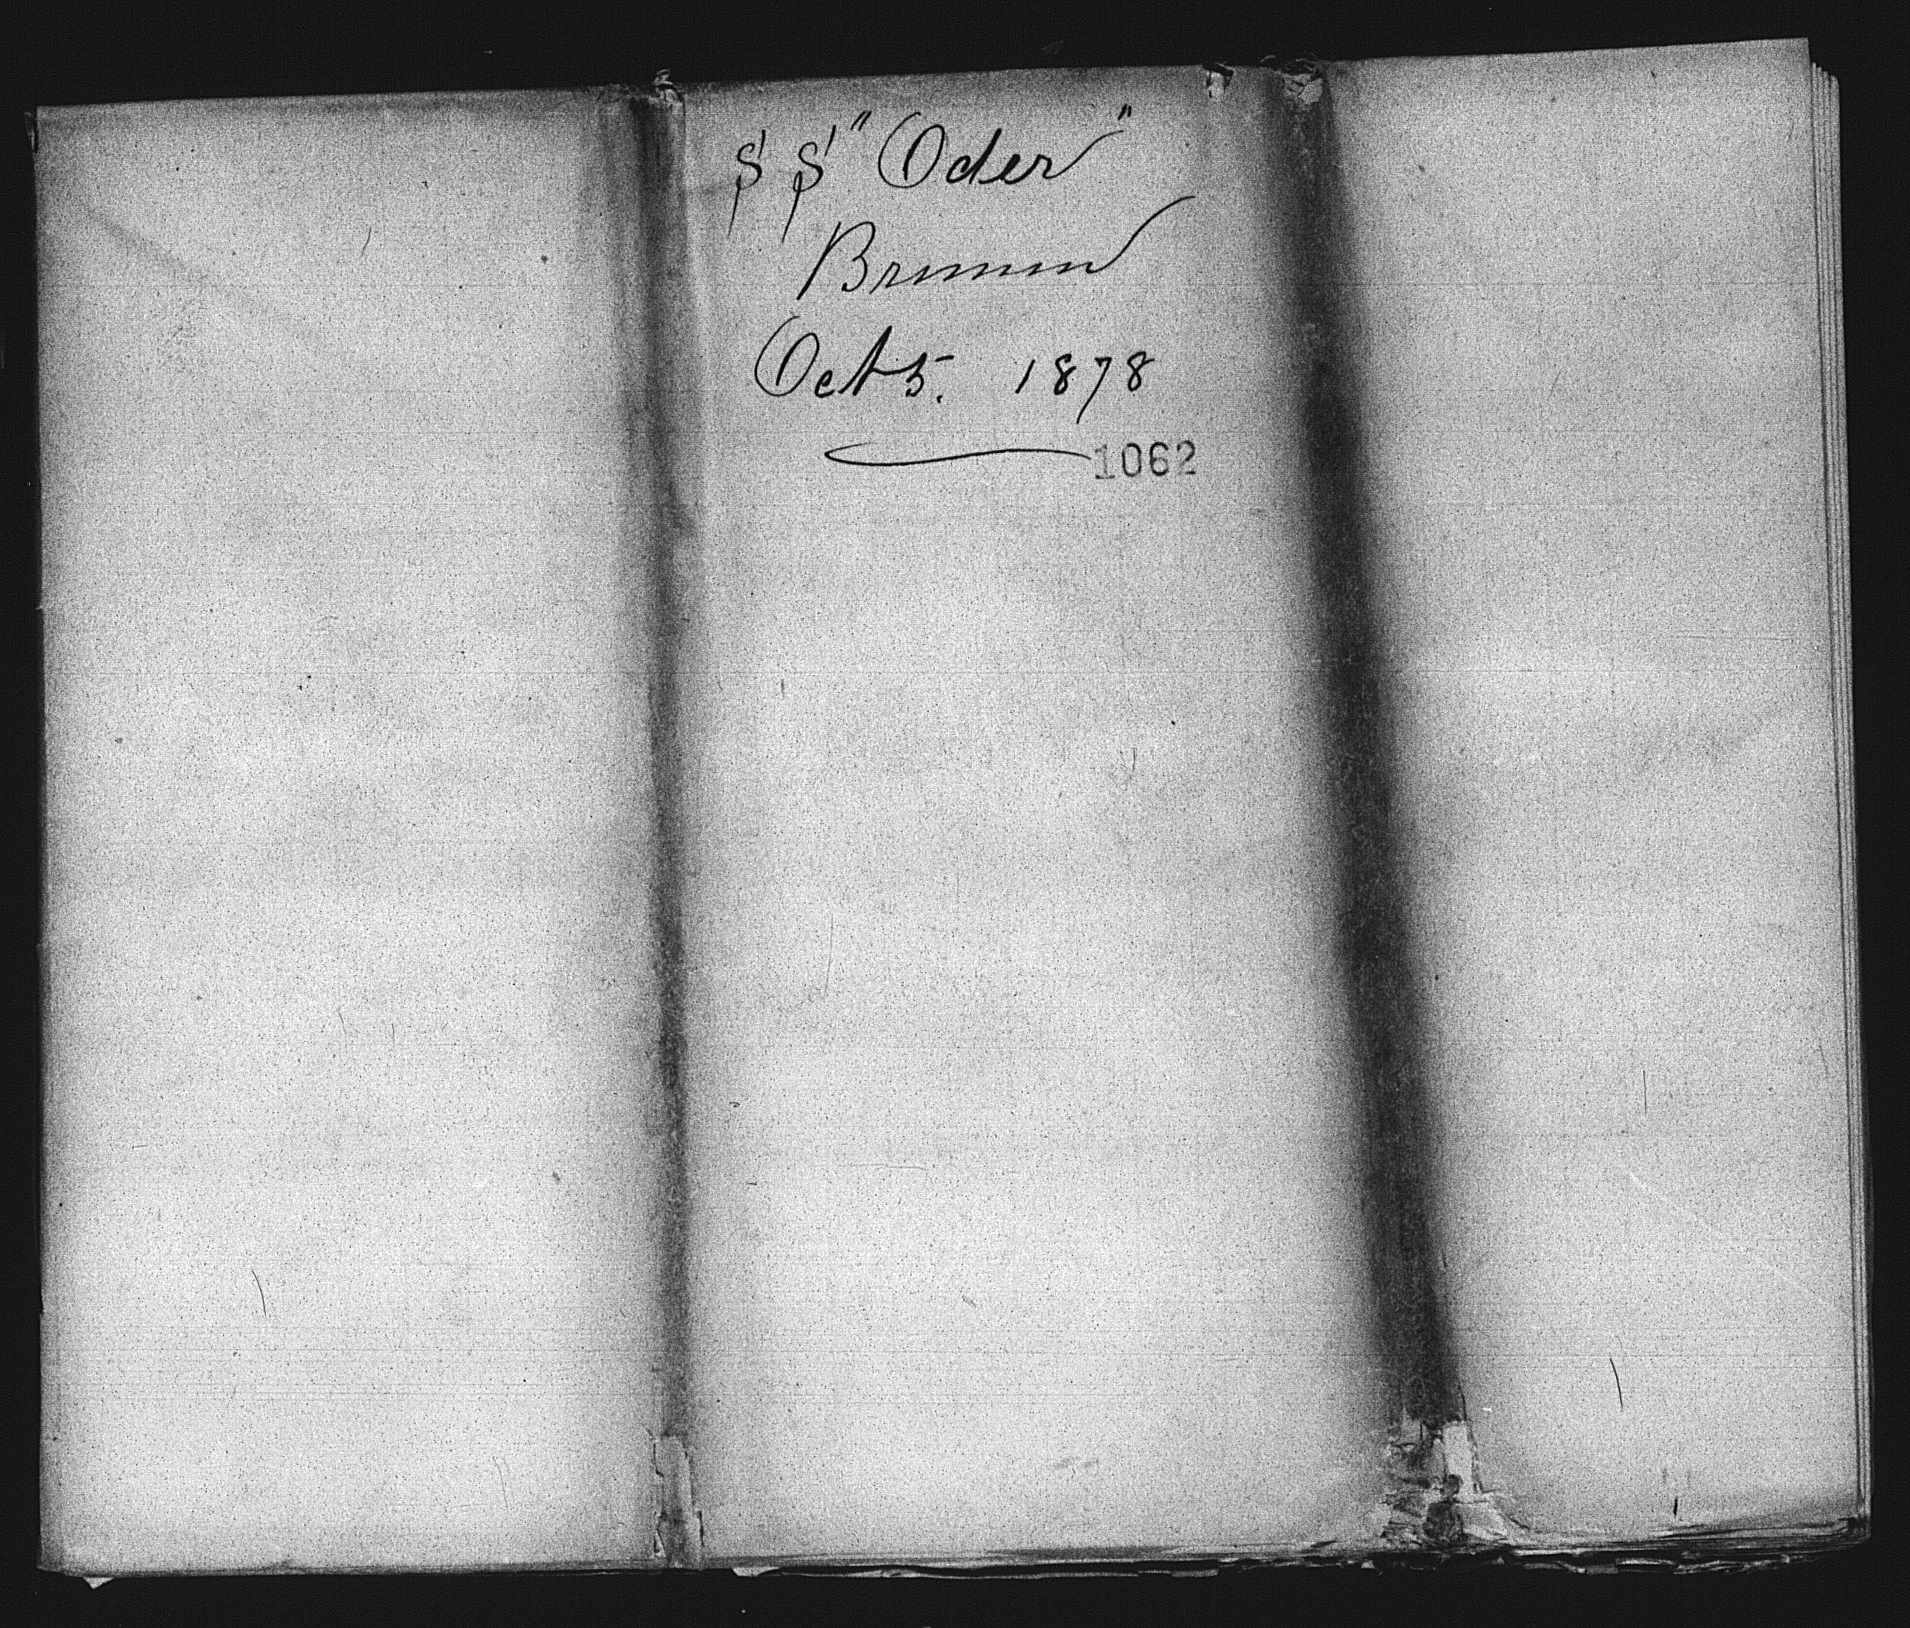 SS "Oder"
Bremen
Oct 5. 1878
1062